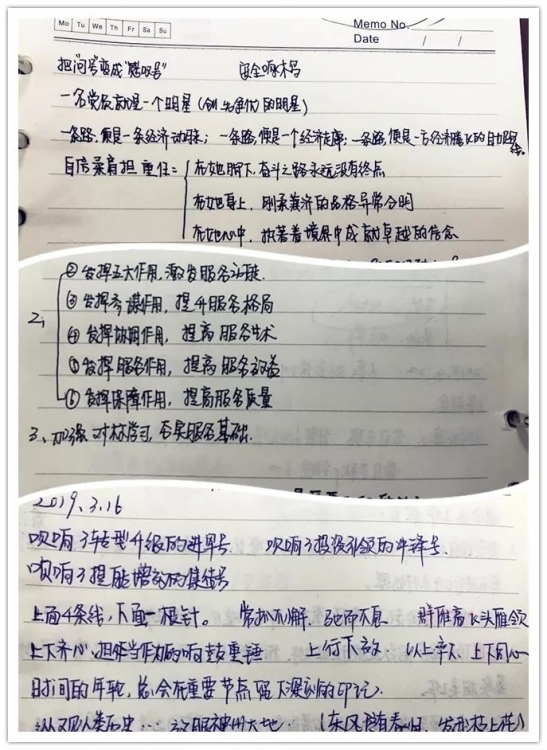 Mo Tu We Th Fr Sa Su
Memo No.
Date / /
把"问号"变成"感叹号" 安全啄木鸟
一名党员就是一个明星（创先争优的明星）
一条路,便是一条经济动脉； 一条路,便是一个经济走廊； 一条路,便是一方经济腾飞的自力
自信柔肩担重任：
在她脚下,奋斗之路永远没有终点
在她身上，刚柔兼济的品格异常分明
在她心中，执著着 中成就卓越的信念
发挥五大作用,激发服务
2、
③发挥参谋作用，提升服务格局
④发挥协调作用，提高服务艺术
发挥服务作用，提高服务效益
发挥保障作用，提高服务质量
3、加强对标学习,夯实服务基础.
2019.3.16
吹响了转型升级的进军号 吹响了投资引领的冲锋号
吹响了提能增效的集结号
上面4条线，下面一根针。 常抓不懈、驰而不息 群雁高飞头雁领
上下齐心、担当作为的响鼓重锤 上行下效. 以上率下、上下同心
时间的年轮，总会在重要节点留下深刻的印记.
纵观人类历史… 神州大地 （东风 有春